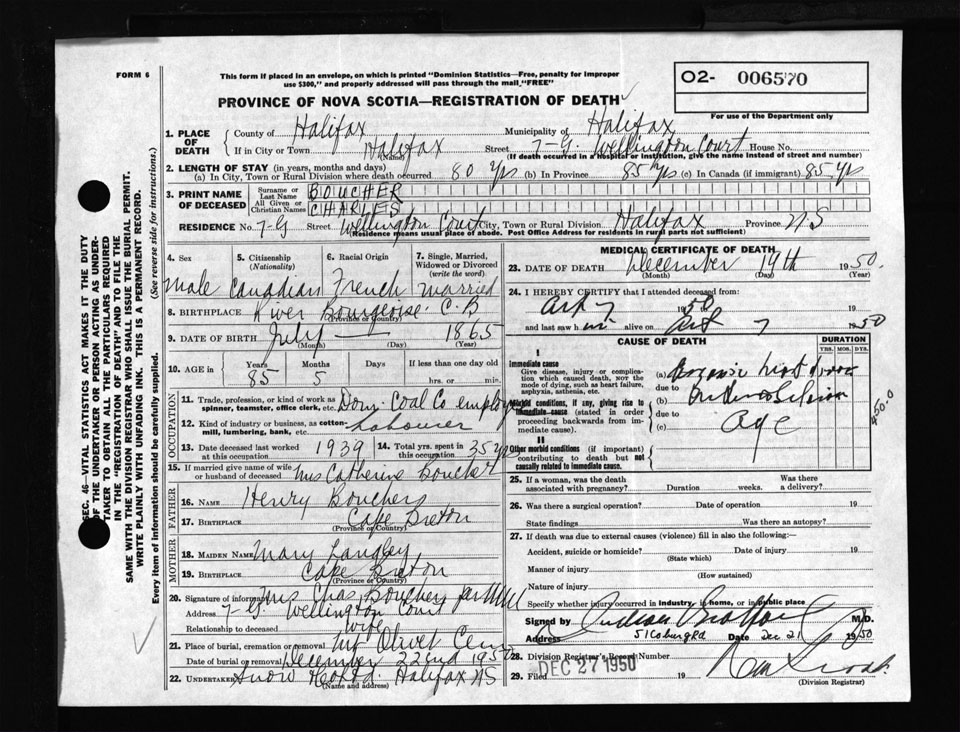 FORM 6
This form if placed in an envelope, on which is printed "Dominion Statistics—Free, penalty for improper
use $300," and properly addressed will pass through the mail "FREE"
O2- 006570
PROVINCE OF NOVA SCOTIA—REGISTRATION OF DEATH
For use of the Department only
1. PLACE OF DEATH County of Halifax Municipality of Halifax
If in City or Town Halifax (Name) Street 7-G. Wellington Court House No.
(If death occurred in a hospital or institution, give the name instead of street and number)
2. LENGTH OF STAY (in years, months and days)
(a) In City, Town or Rural Division where death occurred 80 yrs (b) In Province 85 yrs (c) In Canada (if immigrant) 85 yrs
3. PRINT NAME OF DECEASED Surname or Last Name BOUCHER
All Given or Christian Names CHARLES
RESIDENCE No. 7-G Street Wellington Court City, Town or Rural Division Halifax Province N.S
(Residence means usual place of abode. Post Office Address for residents in rural parts not sufficient)
4. Sex 5. Citizenship (Nationality) 6. Racial Origin 7. Single, Married, Widowed or Divorced (write the word)
Male Canadian French Married
8. BIRTHPLACE River Bourgeoise C.B
(Province or Country)
9. DATE OF BIRTH July 1865
(Month) (Day) (Year)
10. AGE in Years Months Days If less than one day old
85 5 hrs. or min.
OCCUPATION
11. Trade, profession, or kind of work as spinner, teamster, office clerk, etc. Dom. Coal Co
12. Kind of industry or business, as cotton-mill, lumbering, bank, etc. Labourer
13. Date deceased last worked at this occupation 1939 14. Total yrs. spent in this occupation 35 yrs
15. If married give name of wife or husband of deceased Mrs Catherine Boucher
FATHER
16. NAME Henry Bouchers
17. BIRTHPLACE Cape Breton
(Province or Country)
MOTHER
18. MAIDEN NAME Mary Langley
19. BIRTHPLACE Cape Breton
(Province or Country)
20. Signature of informant Mrs Chas Bouchers
Address 7 G. Wellington Court
Relationship to deceased wife
21. Place of burial, cremation or removal Mt Olivet Cem
Date of burial or removal December 22nd 1950
22. Undertaker Snow Halifax NS
(Name and address)
MEDICAL CERTIFICATE OF DEATH
23. DATE OF DEATH December 19th 1950
(Month) (Day) (Year)
24. I HEREBY CERTIFY that I attended deceased from:
7 1950 19
and last saw h im alive on 7 1950
CAUSE OF DEATH
DURATION
YRS. MOS. DYS.
I
Immediate cause
Give disease, injury or complication which caused death, NOT the mode of dying, such as heart failure, asphyxia, asthenia, etc.
(a) heart
due to
Morbid conditions, if any, giving rise to immediate cause (stated in order proceeding backwards from immediate cause).
(b)
due to
(c) age
II
Other morbid conditions (if important) contributing to death but not causally related to immediate cause.
25. If a woman, was the death associated with pregnancy? Duration weeks. Was there a delivery?
26. Was there a surgical operation? Date of operation 19
State findings Was there an autopsy?
27. If death was due to external causes (violence) fill in also the following:—
Accident, suicide or homicide? Date of injury 19
(State which)
Manner of injury
(How sustained)
Nature of injury
Specify whether injury occurred in industry, in home, or in public place
Signed by M.D.
Address 51 Coburg Rd Date Dec. 21 1950
28. Division Registrar's Record Number
29. Filed DEC 27 1950 19
(Division Registrar)
SEC. 46—VITAL STATISTICS ACT MAKES IT THE DUTY
OF THE UNDERTAKER OR PERSON ACTING AS UNDER-
TAKER TO OBTAIN ALL THE PARTICULARS REQUIRED
IN THE "REGISTRATION OF DEATH" AND TO FILE THE
SAME WITH THE DIVISION REGISTRAR WHO SHALL ISSUE THE BURIAL PERMIT.
WRITE PLAINLY WITH UNFADING INK. THIS IS A PERMANENT RECORD.
Every item of information should be carefully supplied. (See reverse side for instructions.)